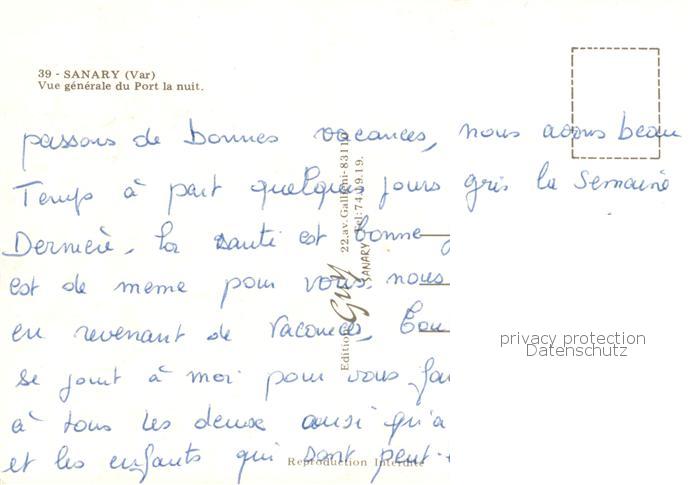 39 - SANARY (Var)
Vue générale du Port la nuit.
passons de bonnes vacances, nous avons beau
Temps à part quelques jours gris la Semaine
Dernière, la santé est bonne
est de meme pour vous. nous
en revenant de Vacances,
se joint à moi pour vous
à tous les deux ainsi qu'a
et les enfants qui sont peut-
Edition GUY 22,av.Gallieni-8311
SANARY Tel:74.09.19.
privacy protection
Datenschutz
Reproduction Interdite